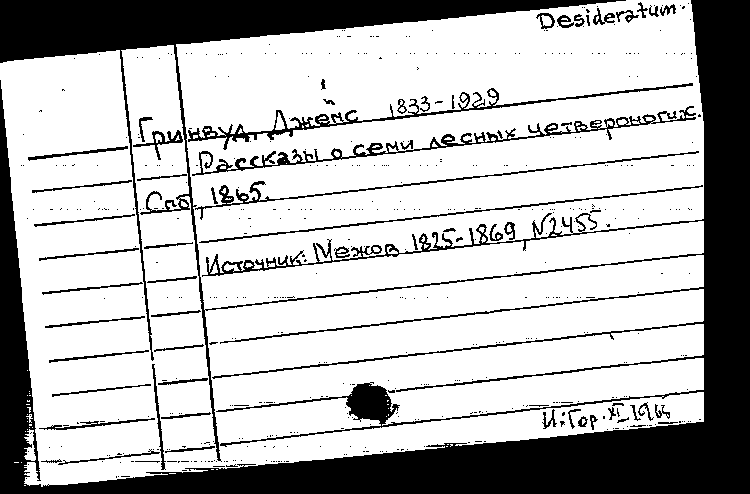 Desideratum.
Гринвуд, Джемс 1833-1929
Рассказы о семи лесных четвероногих.
Спб, 1865.
Источник: Межов 1825-1869, N2455.
И. Гор. XI-1966